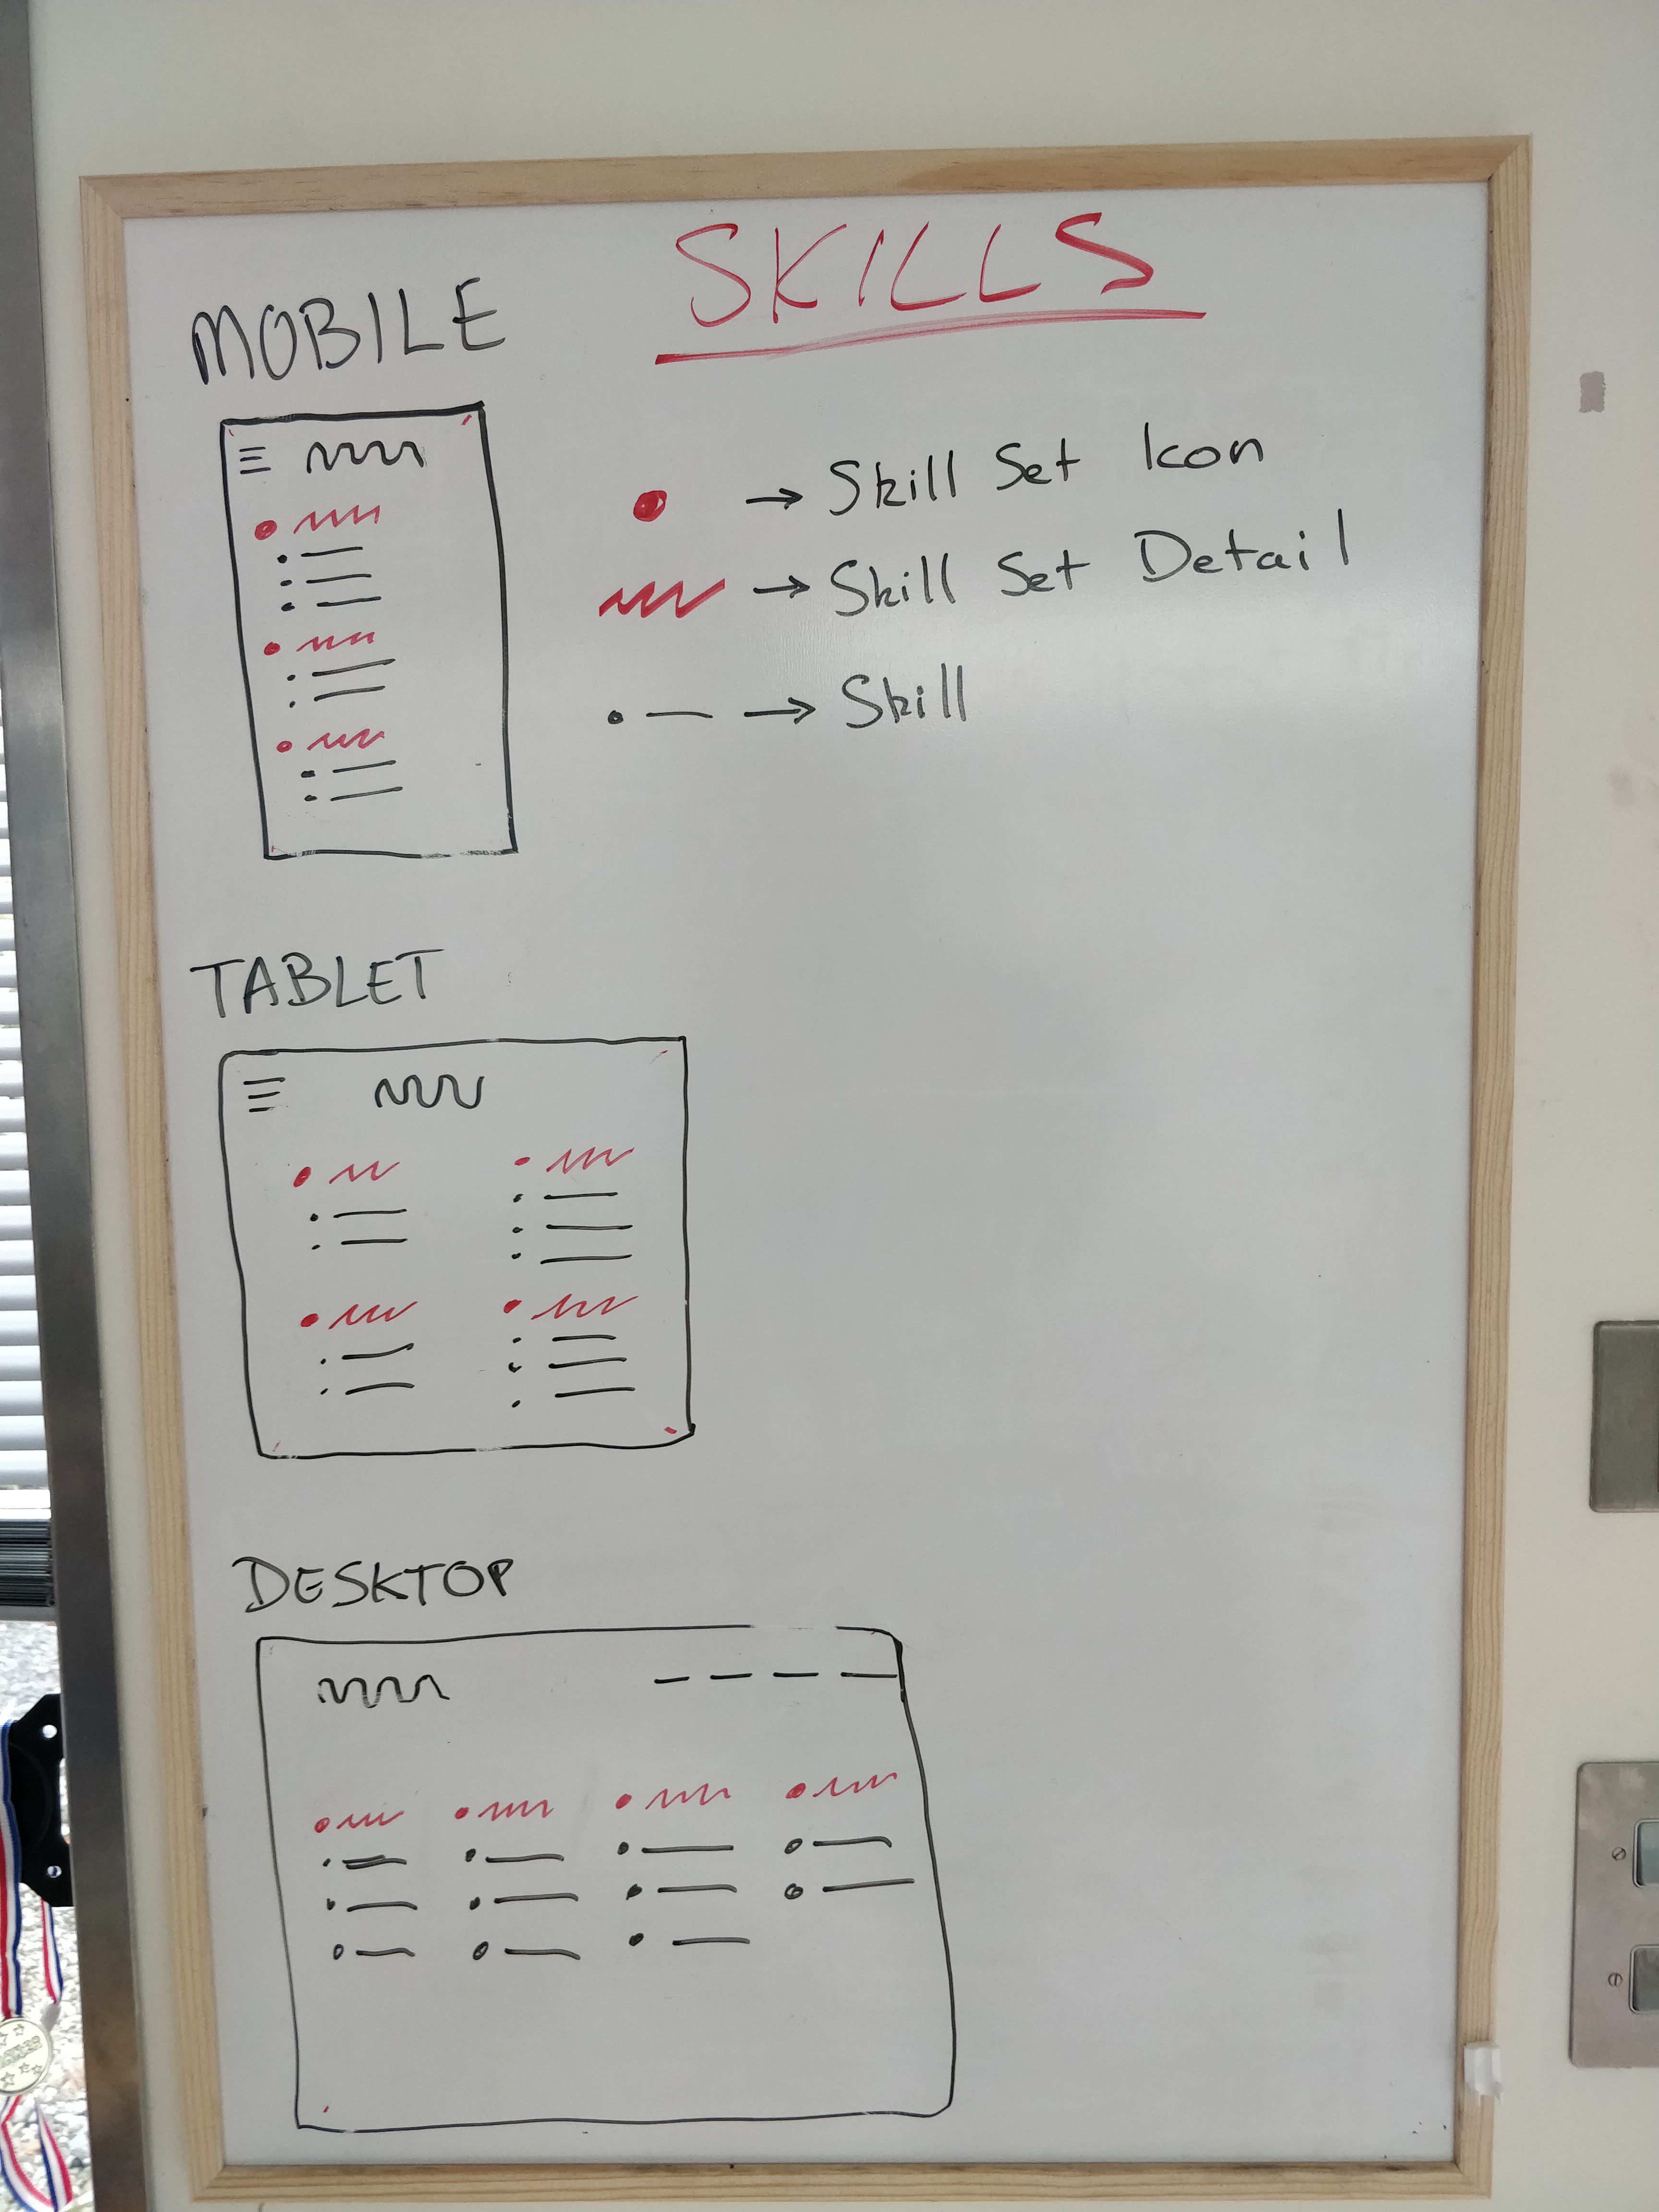 SKILLS
MOBILE
Skill Set Icon
Skill Set Detail
Skill
TABLET
DESKTOP